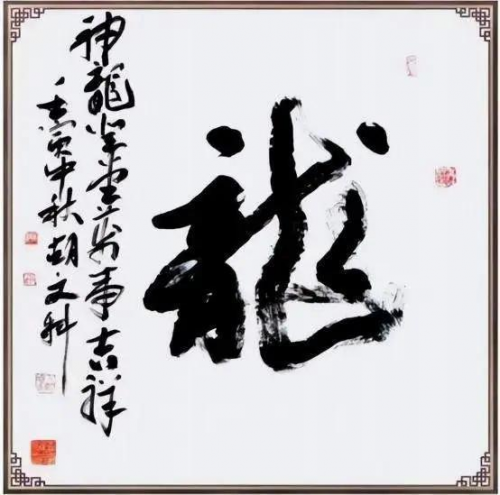 龍
神龍坐堂萬事吉祥
壬寅中秋胡文科